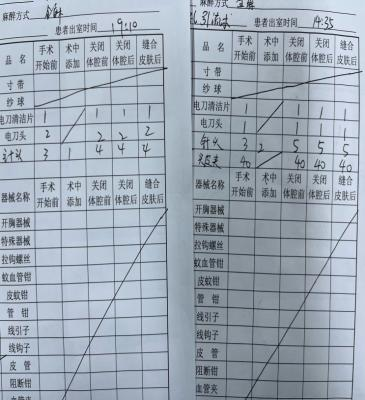 麻醉方式 全麻
患者出室时间 19:10
品 名 手术开始前 术中添加 关闭体腔前 关闭体腔后 缝合皮肤后
寸 带
纱 球
电刀清洁片 1 1 1 1
电刀头 2 2 2 2
针头 3 1 4 4 4
器械名称 手术开始前 术中添加 关闭体腔前 关闭体腔后 缝合皮肤后
开胸器械
特殊器械
拉钩螺丝
蚊血管钳
皮蚊钳
管 钳
线引子
线钩子
皮 管
阻断钳
血管夹
麻醉方式 全麻
引流术
患者出室时间 14:35
品 名 手术开始前 术中添加 关闭体腔前 关闭体腔后 缝合皮肤后
寸 带
纱 球
电刀清洁片 1 1 1 1
电刀头 1 1 1 1
针头 3 2 5 5 5
头皮夹 40 40 40 40
器械名称 手术开始前 术中添加 关闭体腔前 关闭体腔后 缝合皮肤后
开胸器械
特殊器械
拉钩螺丝
蚊血管钳
皮蚊钳
管 钳
线引子
线钩子
皮 管
阻断钳
血管夹